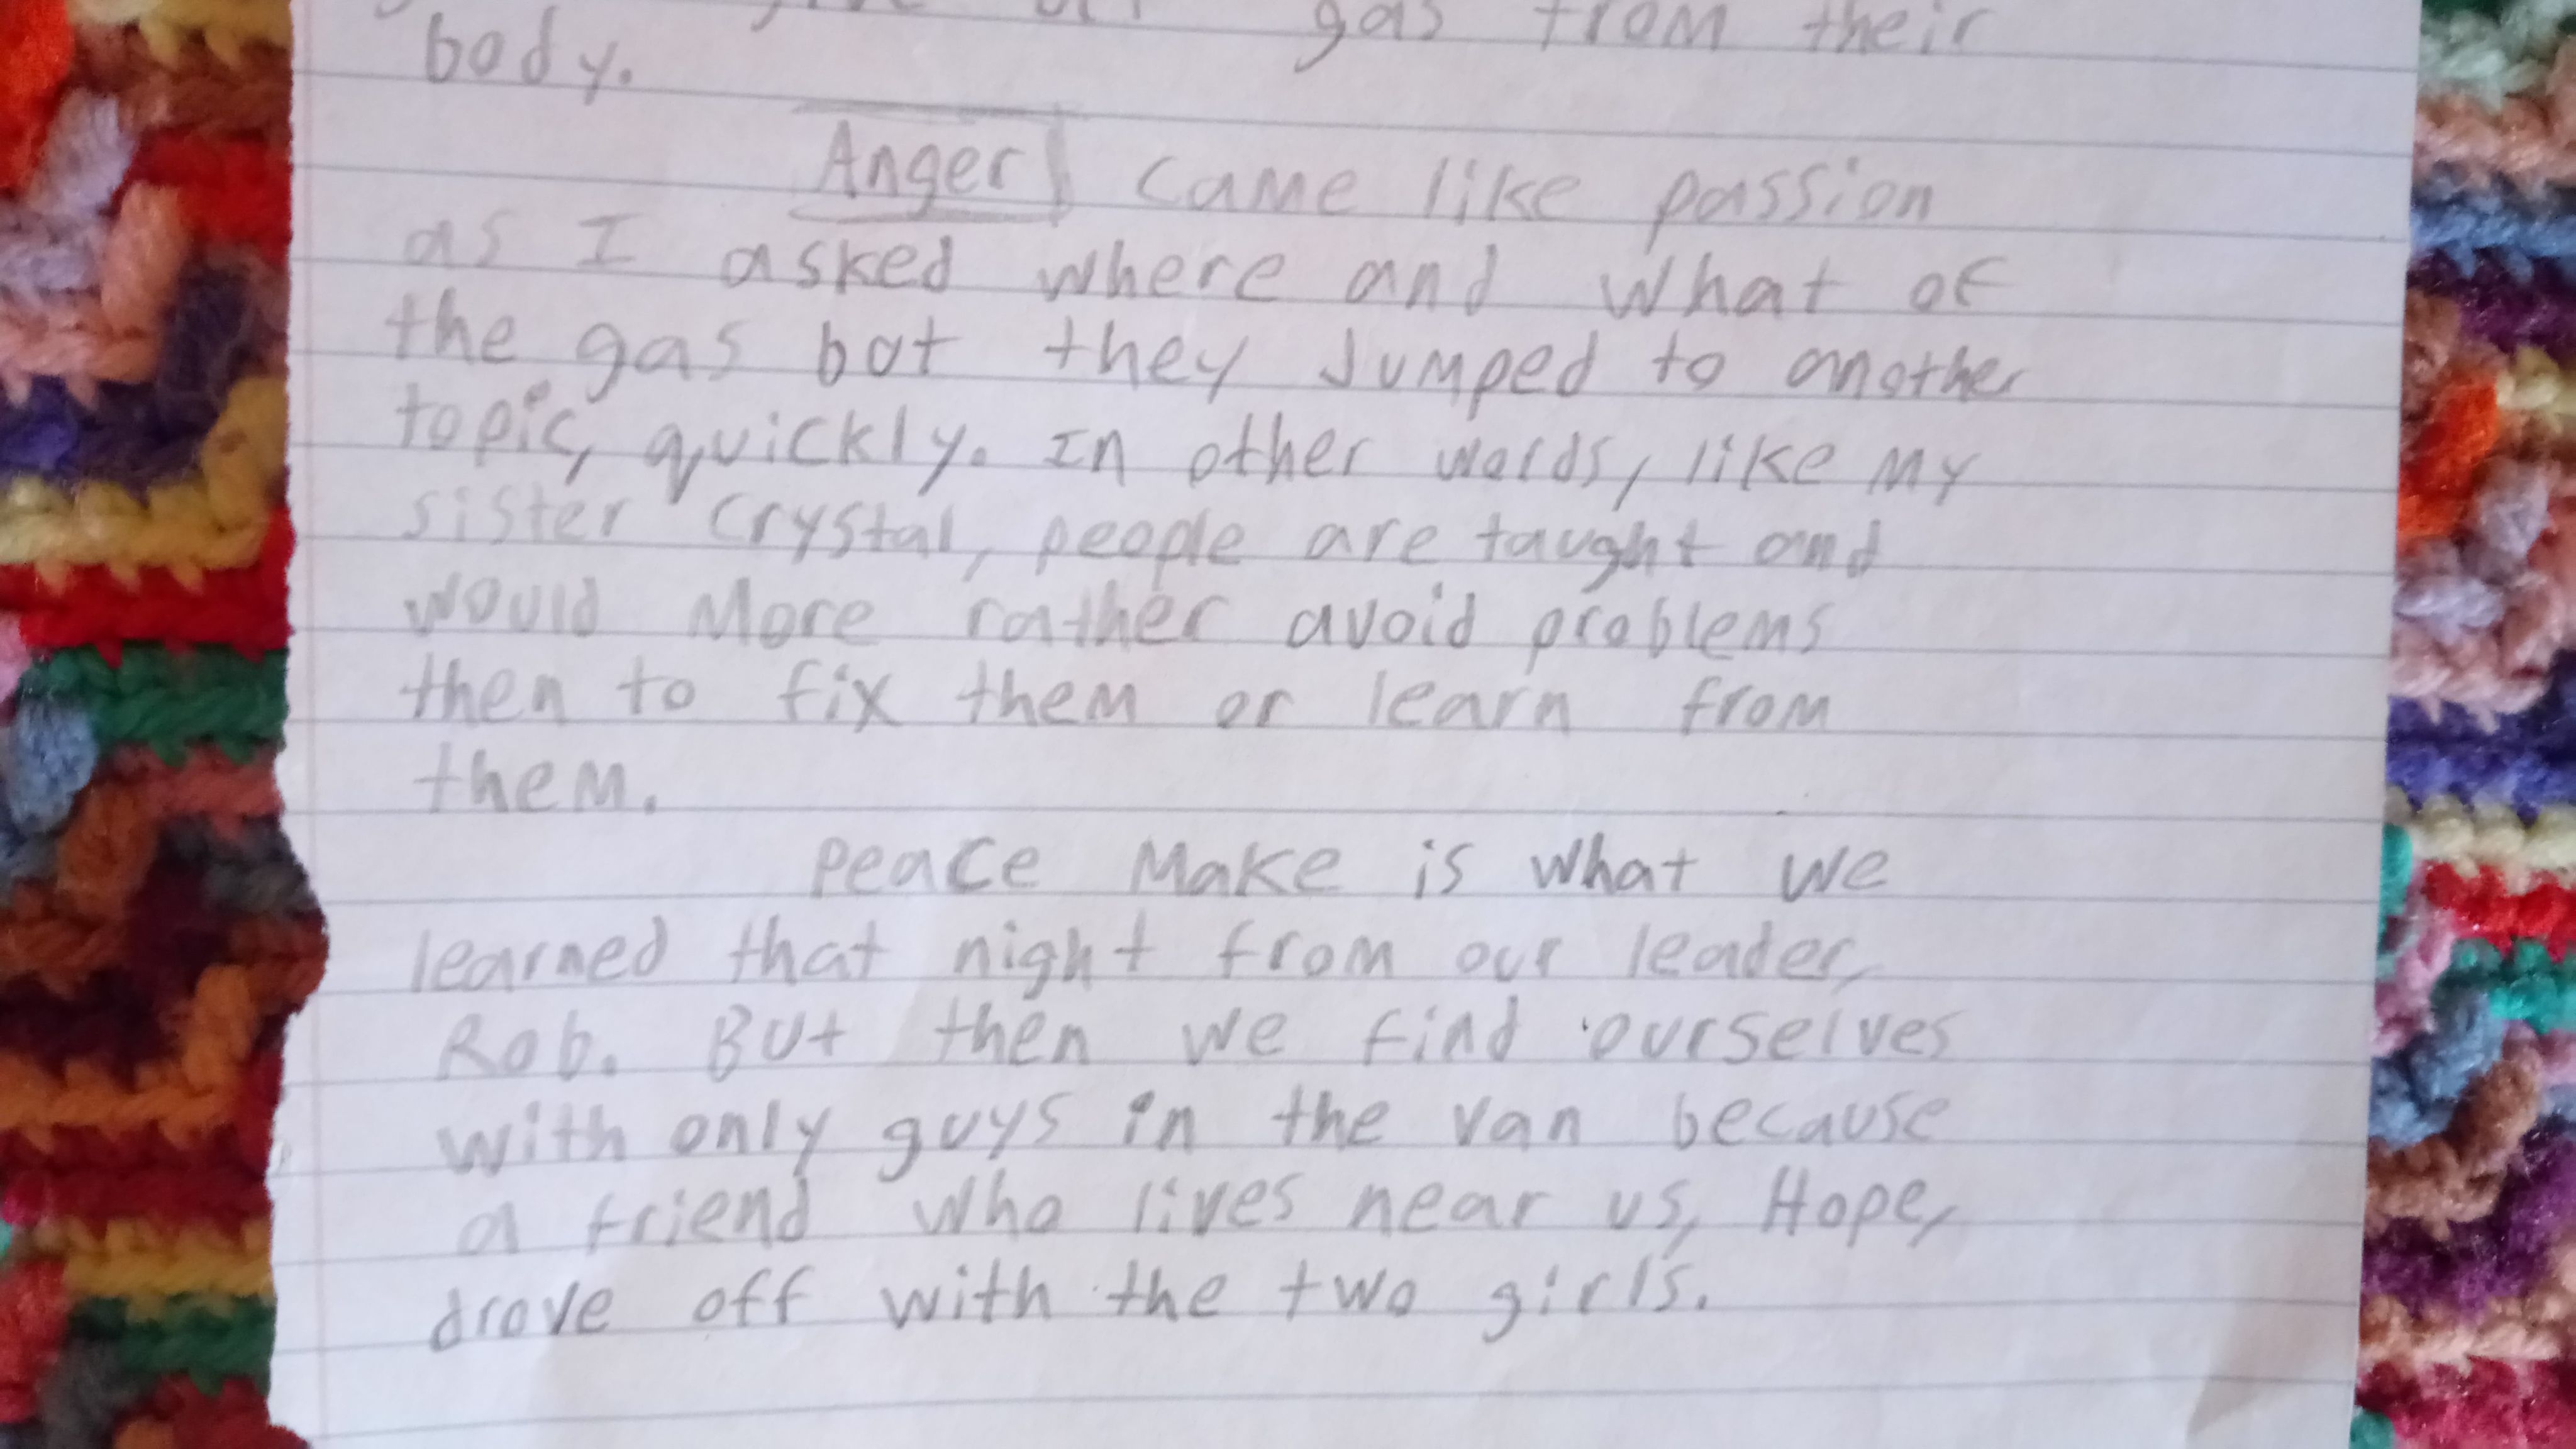 gas from their
body.
Anger came like passion
as I asked where and what of
the gas bot they Jumped to another
topic, quickly. In other words, like my
sister crystal, people are taught and
would more rather avoid problems
then to fix them or learn from
them.
Peace Make is what we
learned that night from our leader,
Rob. But then we find ourselves
with only guys in the van because
a friend who lives near us, Hope,
drove off with the two girls.